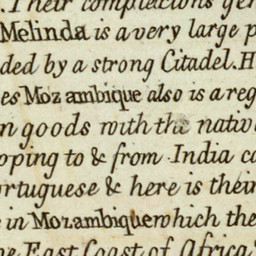 . Their complexions gen
Melinda is a very large p
ded by a strong Citadel. H
es Mozambique also is a reg
n goods with the nativ
oping to & from India ca
ortuguese & here is their
e in Mozambique which the
e East Coast of Africa